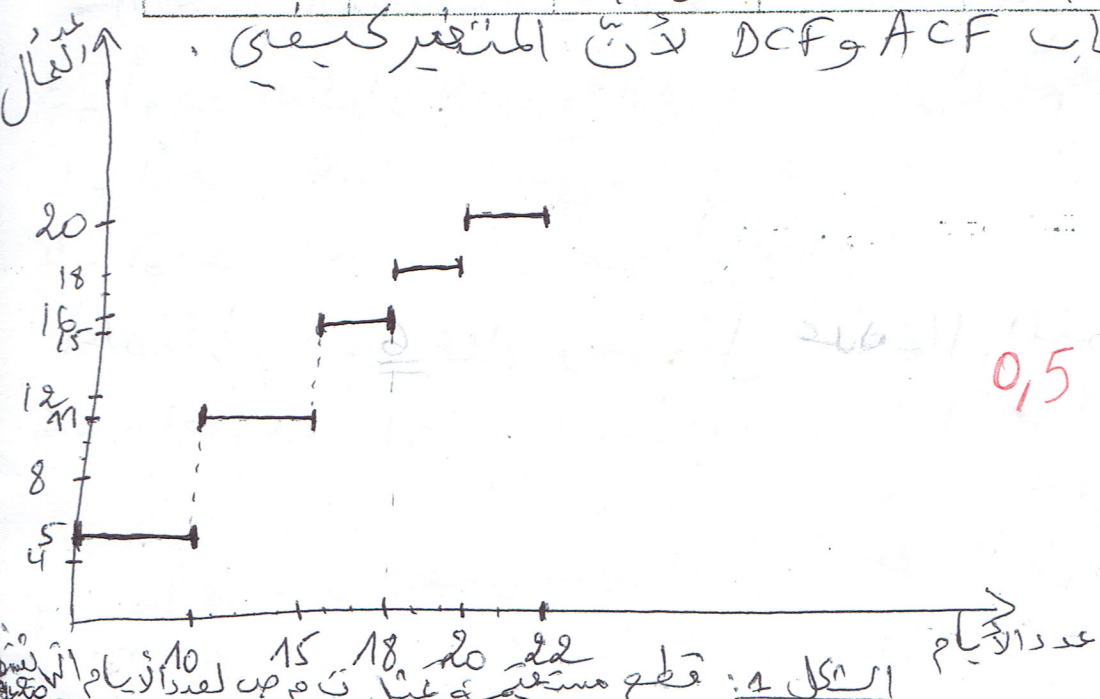 اب ACF و DCF لأنّ المتغير كيفي .
عدد
العمال
20
18
16
15
12
11
8
5
4
0,5
10 15 18 20 22
عدد الأيام
الشكل 1: قطع مستقيمة ت م ص لعدد الأيام